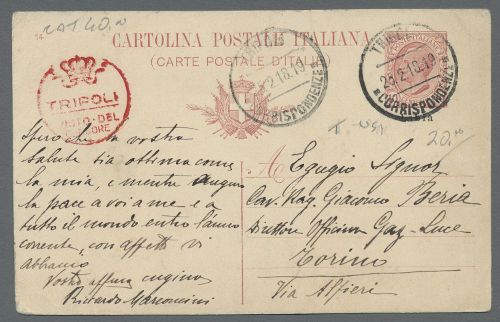 RAT 40,00
14
CARTOLINA POSTALE ITALIANA
(CARTE POSTALE D'ITALIE)
TRIPOLI
POSTO DEL
TRIPOLI
2.18.19
CORRISPONDENZE
TRIPOLI
2.18.19
CORRISPONDENZE
20,00
Spero che la vostra
salute sia ottima come
la mia, e mentre auguro
la pace a voi a me e a
tutto il mondo entro l'anno
corrente, con affetti vi
abbraccio
Vostro affmo cugino
Riccardo Marconcini
A Egregio Signor
Cav. Rag. Giacomo Beria
Direttore Officina Gaz-Luce
Torino
Via Alfieri